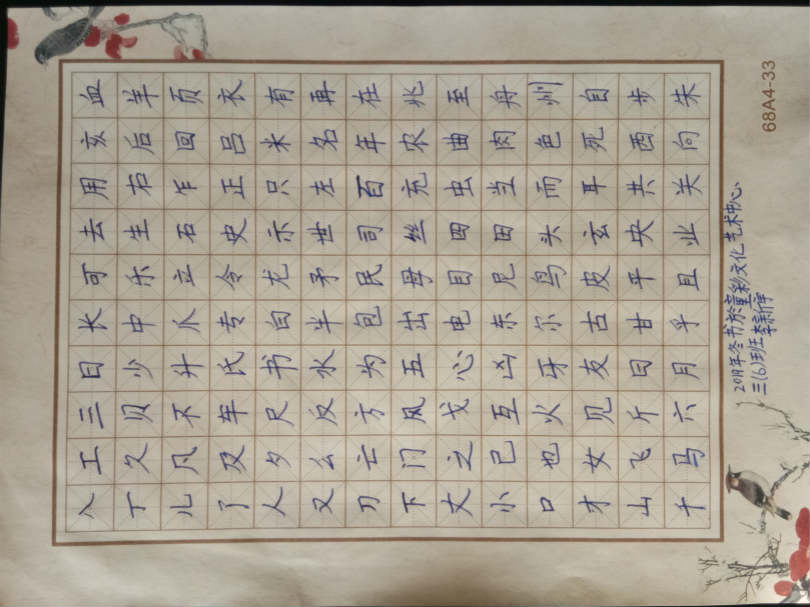 八工三日长可去用亥血
丁久贝少中乐生右后羊
儿凡不升爪立石乍回页
了及车氏专令史正吕衣
人夕尺书白龙示只米有
又么反水半矛世左名再
刀亡方为包民司百年在
下门风五出母丝充农兆
丈之戈心电目四虫曲至
小已互凶东尼田当肉舟
口也火牙尔鸟头而色州
才女见友古皮玄耳死自
山飞斤曰甘平央共西步
千马六月乎且业关向朱
2019年冬书於童彩文化艺术中心
三(6)班李新
68A4-33